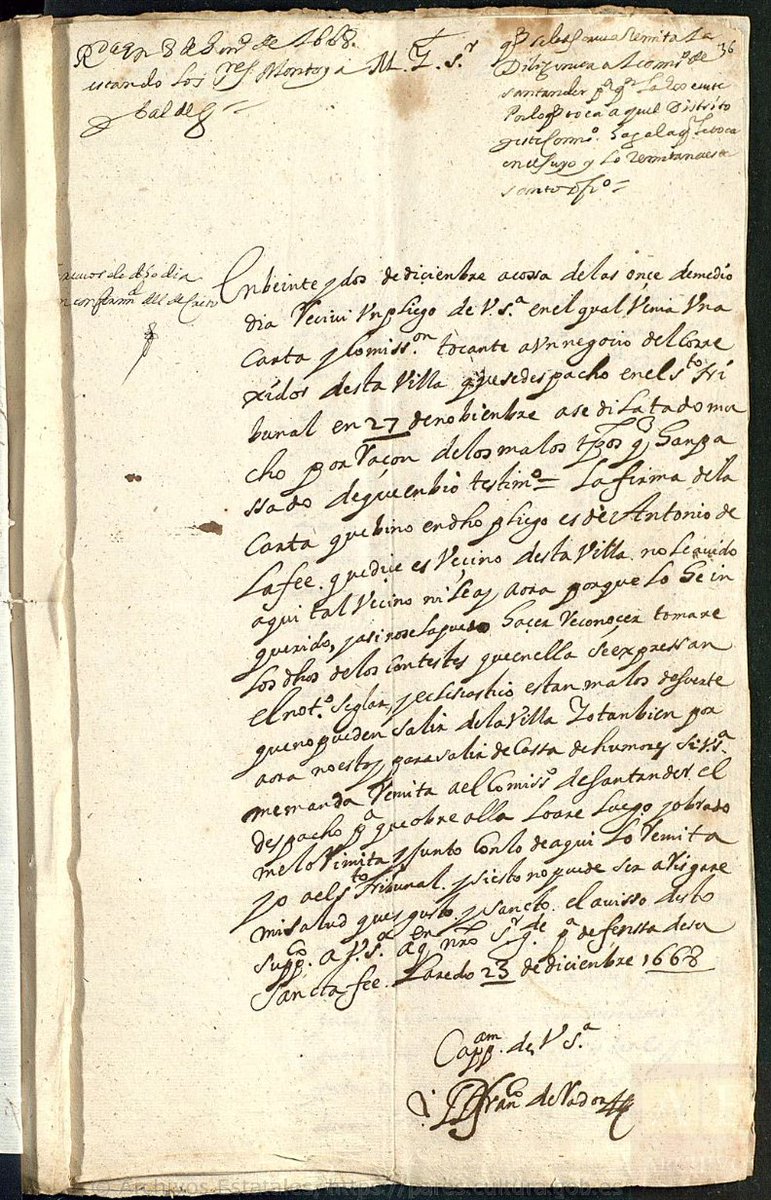 R.da en 8 de en.º de 1668.
estando los s.res Montoya
Baldes =
M. I. S.r
q̃ se le escriua Remita la
Dilixencia al comi.º de
santander p.ª q.e la execute
Por lo q̃ toca a aquel Distrito
y este comi.º haga la q̃ le toca
en el suyo y lo Remitan a este
santo ofi.º =
36
de dho dia
En beinte y dos de diciembre a cossa de las once de medio
dia Recivi Un pliego de V.S.ª en el qual Venia Una
Carta y Comiss.on tocante a Un negocio del Corre
xidor desta Villa que se despacho en el S.to Tri
bunal en 27 de nobienbre a se dilatado mu
cho por Raçon de los malos tpos q̃ han pa
ssado de que enbio testim.º = La firma de la
Carta que bino en dho pliego es de Antonio de
Lafee. que dice es Veçino desta Villa. no le auido
aqui tal Veçino ni le ay aora porque lo he in
querido, y asi no se la puedo haçer Reconoçer tomare
los dhos de los Contestes que en ella se expressan
el not.º seglar, y eclesiastico estan malos de suerte
que no pueden salir de la Villa Yo tanbien por
aora no estoy para salir de Casa de humores si V.S.ª
me manda Remita a el Comiss.º de Santander el
despacho p.ª que obre alla lo are luego y obrado
me lo Rimita y junto con lo de aqui lo Remita
yo a el s.to Tribunal. y si esto no puede ser arisgare
mi salud que es gusto y sancto. el avisso desto
supp.co a V.S.ª a q.en nro S.r g.de p.ª defenssa de su
Sancta fee. Laredo 23 de diciembre 1668
Cap.am de V S.ª
Fran.co de
Archivos Estatales, https://pares.cultura.gob.es